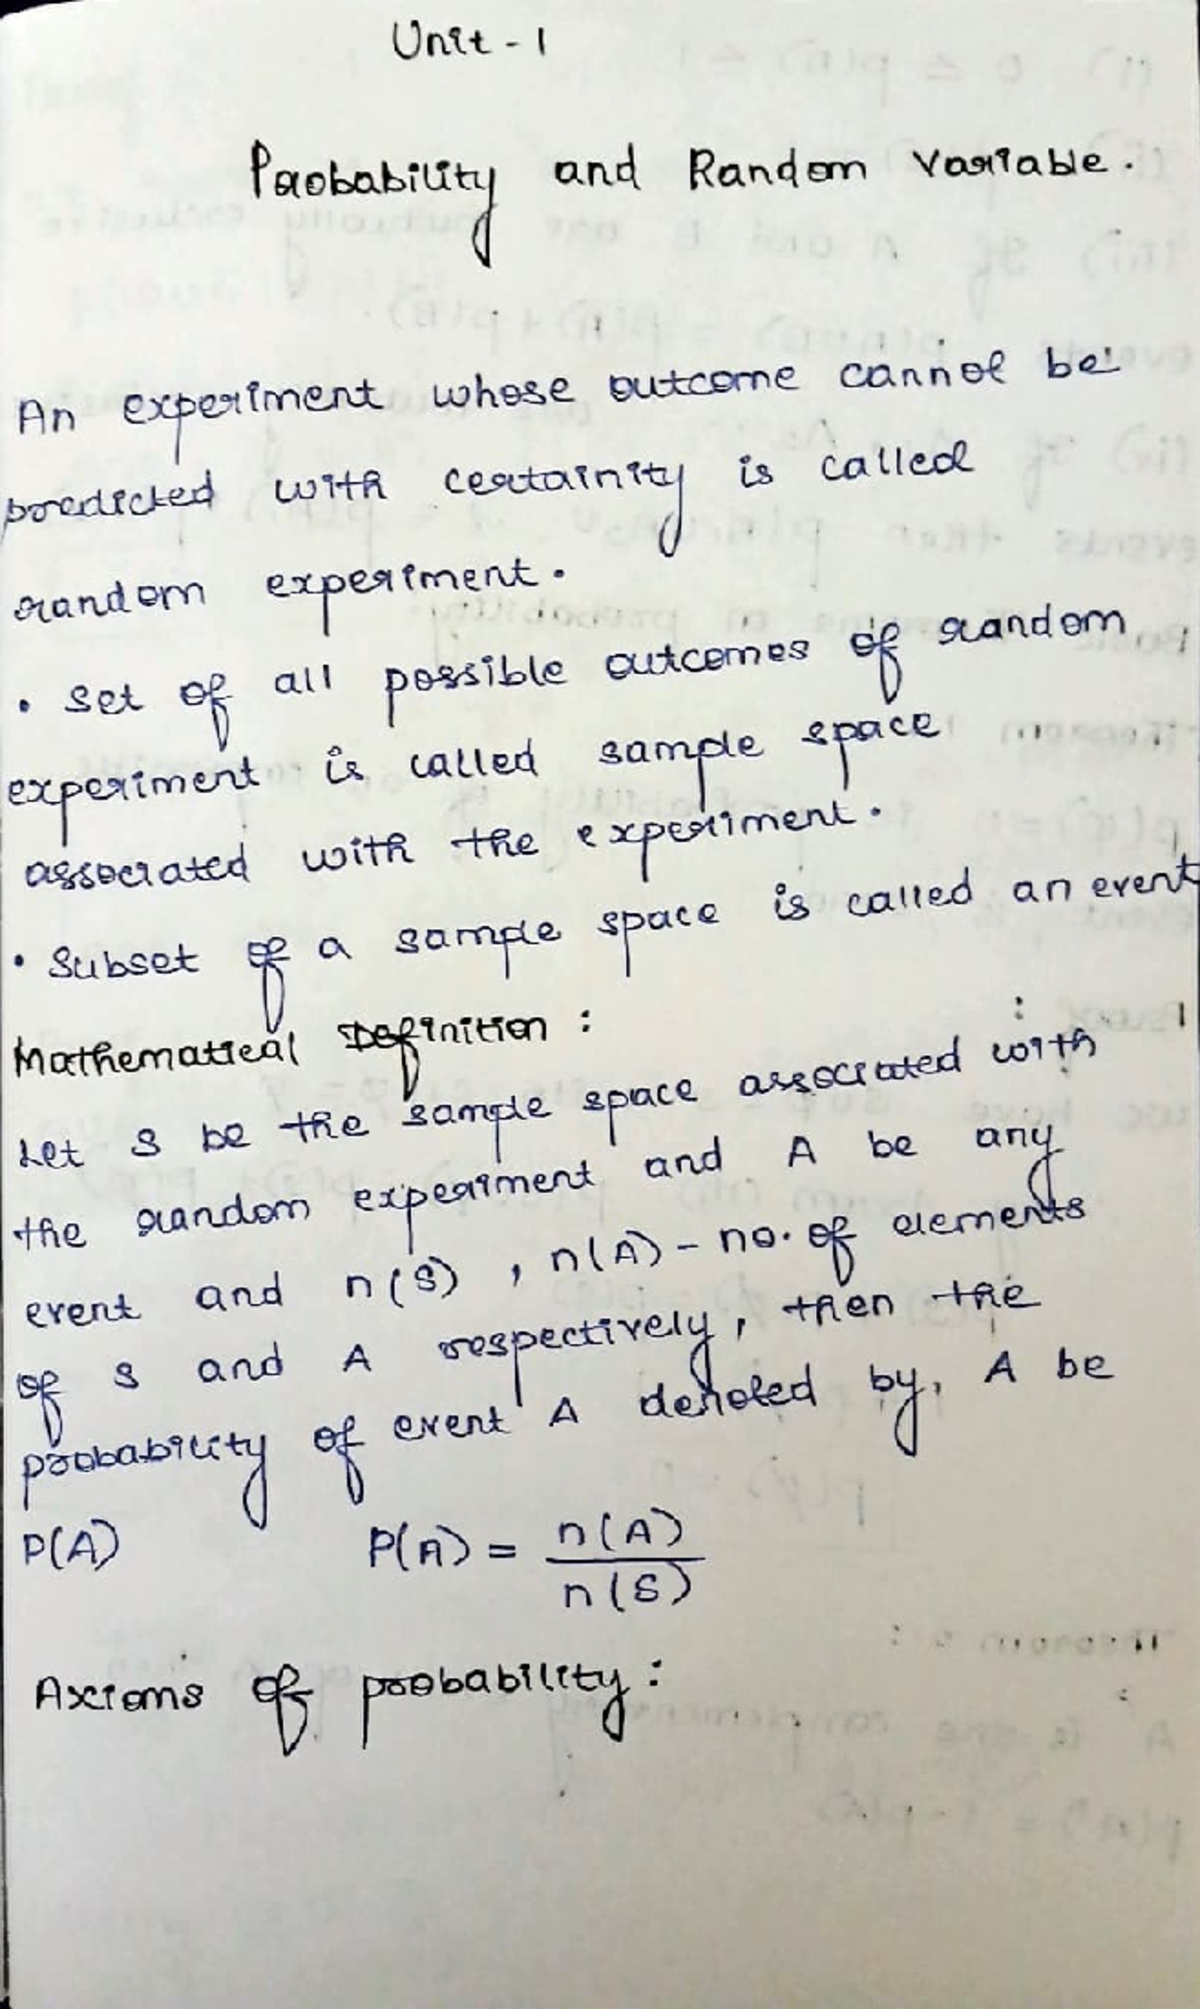 Unit - 1
Probability and Random Variable.
An experiment whose outcome cannot be
predicted with certainity is called
random experiment.
• Set of all possible outcomes of random
experiment is called sample space
associated with the experiment.
• Subset of a sample space is called an event
Mathematical Definition :
Let S be the sample space associated with
the random experiment and A be any
event and n(S) , n(A) - no. of elements
of S and A respectively, then the
probability of event A denoted by, A be
P(A) P(A) = n(A)/n(S)
Axioms of probability :